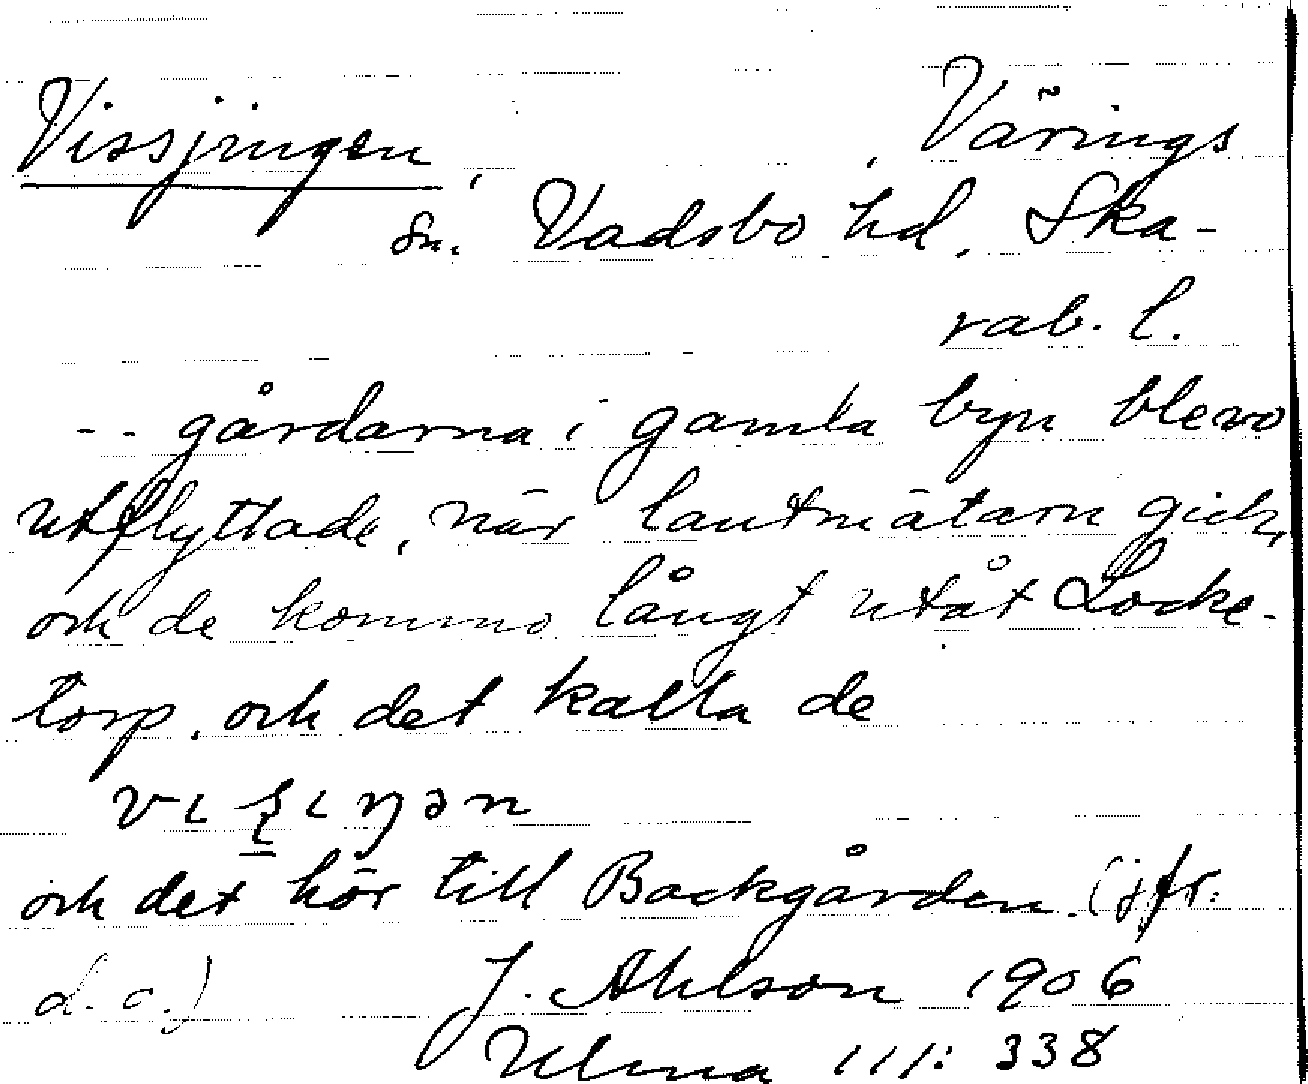 Vissjingen, Värings
sn. Vadsbo hd. Ska-
rab. l.
-- gårdarna i gamla byn blevo
utflyttade, när lantmätarn gick,
och de kommo långt utåt Locke-
torp. och det kalla de
och det hör till Backgården. (jfr.
d. o.) J. Ahlson 1906
Ulma 111: 338